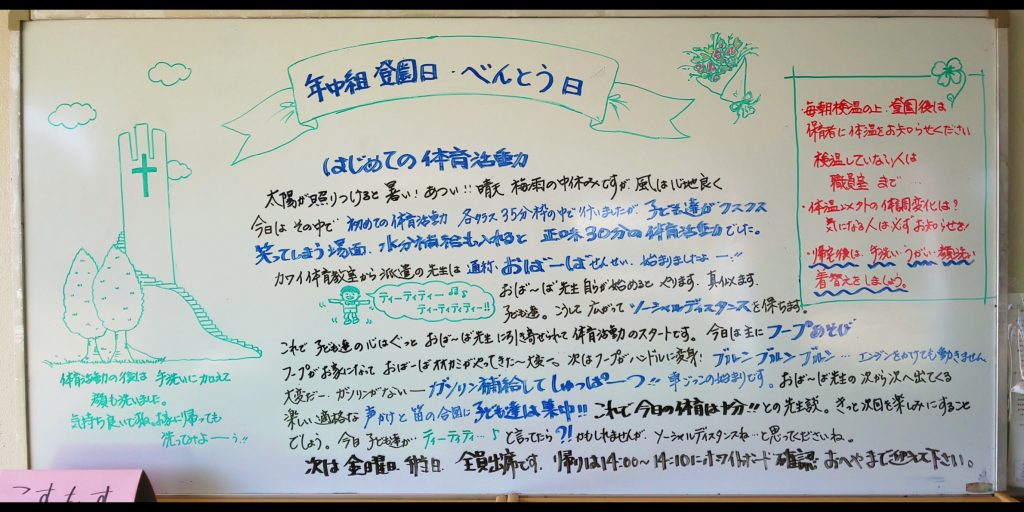 年中組 登園日・べんとう日
はじめての体育活動
太陽が照りつけると暑い！あつい！！晴天 梅雨の中休みですが、風は心地良く
今日は その中で 初めての体育活動 各クラス35分枠の中で行いましたが、子ども達がクスクス
笑ってしまう場面、水分補給も入れると 正味30分の体育活動でした。
カワイ体育教室から派遣の先生は 通称、おばーばせんせい。始まりましたよー!!
おば〜ば先生自らが始めると やります、真似ます
子ども達。こうして広がって ソーシャルディスタンスを保ちます。
ティーティティー♪♫
ティーティティティー!!
これで 子ども達の心はぐっと おば〜ば先生に引き寄せられて 体育活動のスタートです。今日は主に フープあそび
フープがお家になって おばーばオオカミがやってきた〜大変〜。次はフープがハンドルに変身！ブルーン ブルーン ブルーン… エンジンをかけても動きません
大変だー、ガソリンがないー ガソリン補給して しゅっぱーつ!! 車ごっこの始まりです。おば〜ば先生の次から次へ出てくる
楽しい適格な 声かけと笛の合図に 子ども達は集中!!! これで今日の体育は十分!! との先生談。きっと次回を楽しみにすること
でしょう。今日 子ども達が、ティーティティ…♪ と言ってたら ?! かもしれませんが、ソーシャルディスタンスね…と思ってくださいね。
次は 金曜日 全員出席です。帰りは14:00〜14:10にホワイトボード確認 おへやまで迎えて下さい。
体育活動の後は 手洗いに加えて
顔も洗いました。
気持ち良いでね、お家に帰っても
洗ってみよーう!!
・毎朝検温の上、登園後は
保育者に体温をお知らせください
検温していない人は
職員室 まで…
・体温以外の体調変化は？
気になる人は必ずお知らせを！
・帰宅後は、手洗い・うがい・顔洗い
着替えをしましょう。
こすもす